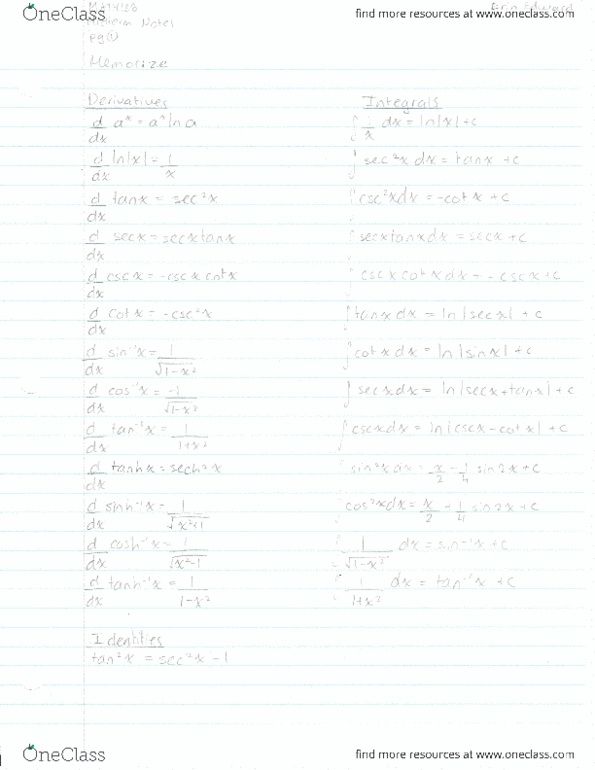 OneClass
find more resources at www.oneclass.com
Midterm Notes
pg ①
Memorize
Derivatives
d/dx a^x = a^x ln a
d/dx ln|x| = 1/x
d/dx tanx = sec²x
d/dx secx = secxtanx
d/dx cscx = -cscxcotx
d/dx cotx = -csc²x
d/dx sin⁻¹x = 1/√(1-x²)
d/dx cos⁻¹x = -1/√(1-x²)
d/dx tan⁻¹x = 1/(1+x²)
d/dx tanhx = sech²x
d/dx sinh⁻¹x = 1/√(x²+1)
d/dx cosh⁻¹x = 1/√(x²-1)
d/dx tanh⁻¹x = 1/(1-x²)
Identities
tan²x = sec²x - 1
Integrals
∫ 1/x dx = ln|x| + c
∫ sec²x dx = tanx + c
∫ csc²x dx = -cotx + c
∫ secxtanx dx = secx + c
∫ cscxcotx dx = -cscx + c
∫ tanx dx = ln|secx| + c
∫ cotx dx = ln|sinx| + c
∫ secx dx = ln|secx+tanx| + c
∫ cscx dx = ln|cscx-cotx| + c
∫ sin²x dx = x/2 - 1/4 sin2x + c
∫ cos²x dx = x/2 + 1/4 sin2x + c
∫ 1/√(1-x²) dx = sin⁻¹x + c
∫ 1/(1+x²) dx = tan⁻¹x + c
OneClass
find more resources at www.oneclass.com